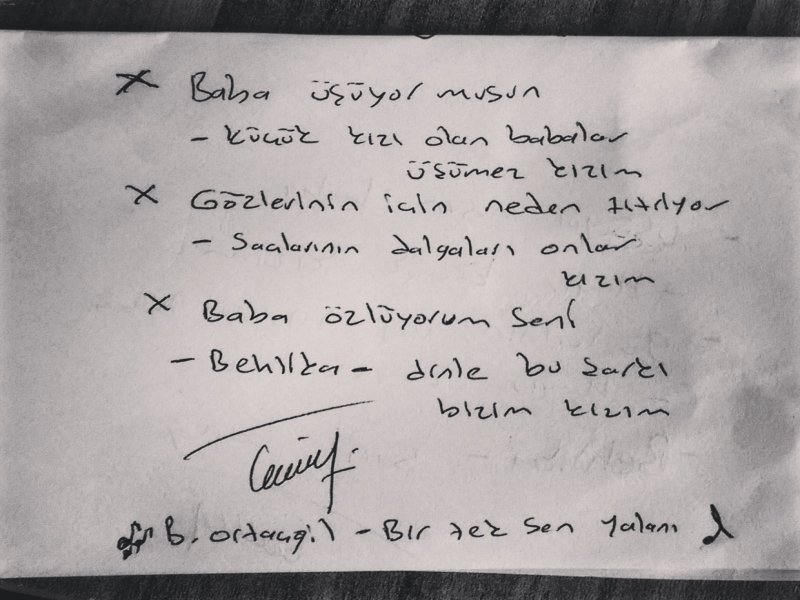 x Baba üşüyor musun
- Küçük kızı olan babalar
üşümez kızım
x Gözlerinin için neden titriyor
- Saçlarının dalgaları onlar
kızım
x Baba özlüyorum seni
- - dinle bu şarkı
bizim kızım
B. ortaçgil - Bir tek sen